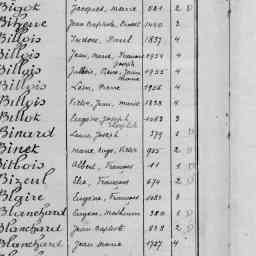 Bigot Jacques, Marie 081 2
Biheue Jean Baptiste, Ernest 1040 3
Billois Isidore, Paul 1837 4
Billois Jean, Marie, François Joseph 1954 4
Billois Pierre, Jean, Marie 1955 4
Billois Léon, Pierre 1956 4
Billois Victor, Jean, Marie 1838 4
Billot Eugène, Joseph 1083 3
Binard Louis, Joseph 379 1
Binet Marie, Ange, Victor 985 2
Bitbois Albert, François 11 1
Bizeul Elie, François 674 2
Blaire Eugène, François 1084 3
Blanchard Eugène, Mathurin 380 1
Blanchard Jean Baptiste 878 2
Blanchard Jean Marie 1727 4